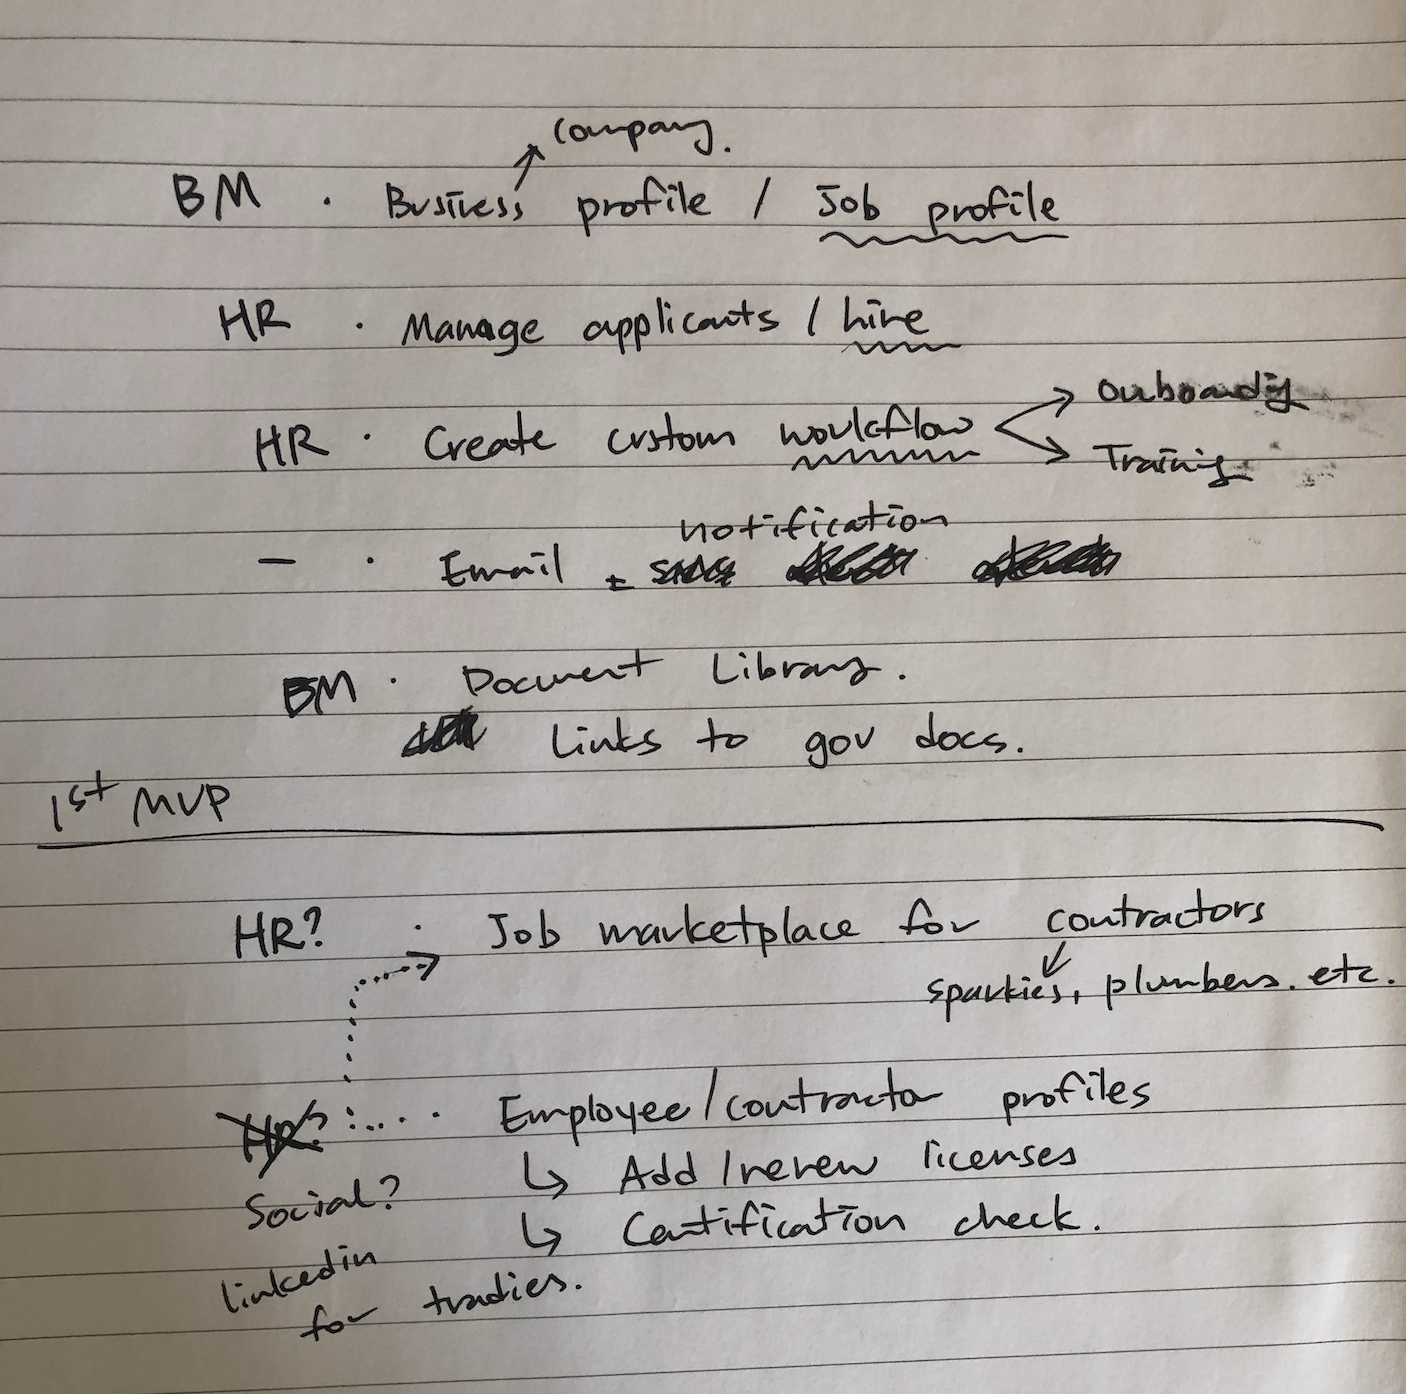 company.
BM · Business profile / Job profile
HR · Manage applicants / hire
HR · Create custom workflow
Onboarding
Training
notification
- · Email
BM · Document Library.
Links to gov docs.
1st MVP
HR? · Job marketplace for contractors
sparkies, plumbers. etc.
HR? · Employee/contractor profiles
↳ Add/renew licenses
Social?
↳ Certification check.
linkedin
for tradies.